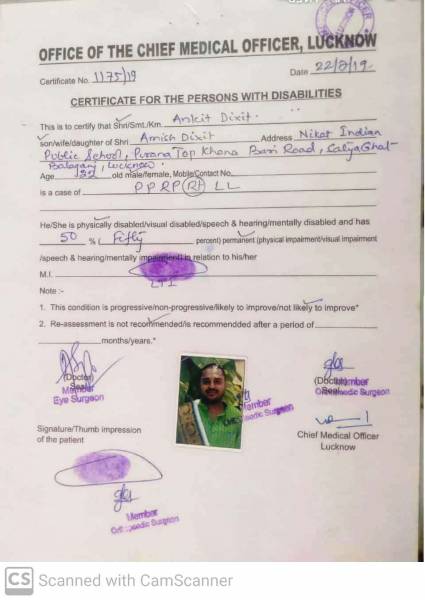 OFFICE OF THE CHIEF MEDICAL OFFICER, LUCKNOW
Certificate No. 1175/19 Date 22/2/19
CERTIFICATE FOR THE PERSONS WITH DISABILITIES
This is to certify that Shri/Smt./Km. Ankit Dixit.
son/wife/daughter of Shri Amish Dixit Address Nikat Indian
Public School, Purana Top Khana Bari Road,
Balaganj, Lucknow.
Age old male/female, Mobile/Contact No.
is a case of P P R P (Rt) L L
He/She is physically disabled/visual disabled/speech & hearing/mentally disabled and has
50 % ( Fifty percent) permanent (physical impairment/visual impairment
/speech & hearing/mentally impairment) in relation to his/her
M.I. LTI
Note :-
1. This condition is progressive/non-progressive/likely to improve/not likely to improve*
2. Re-assessment is not recommended/is recommendded after a period of
months/years.*
(Doctor) (Doctor)
Seal Seal
Member Member
Eye Surgeon Orthopaedic Surgeon
Member
Orthopaedic Surgeon
Signature/Thumb impression
of the patient
Chief Medical Officer
Lucknow
Member
Orthopaedic Surgeon
CS Scanned with CamScanner